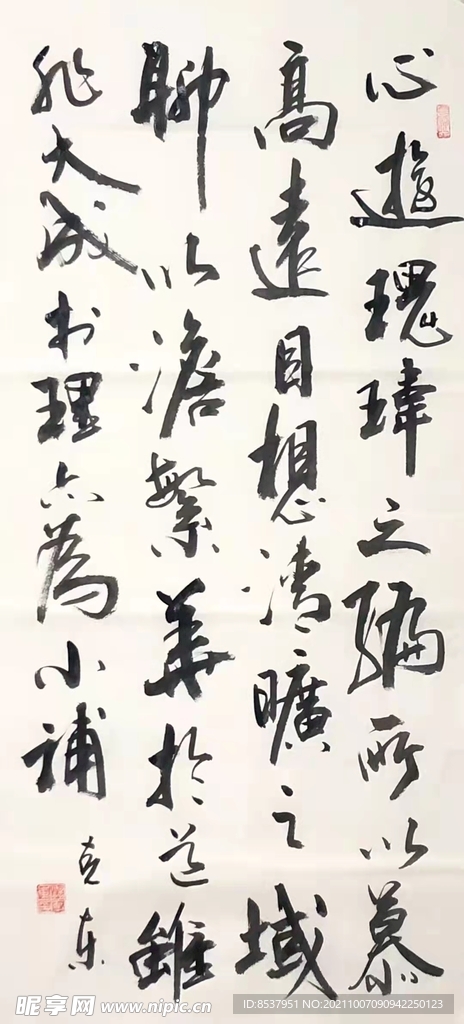 心遊瑰瑋之編所以慕
高遠目想清曠之域
聊以澹繁華於道雖
非大成於理亦為小補
克东
昵享网 www.nipic.cn
ID:8537951 NO:20211007090942250123